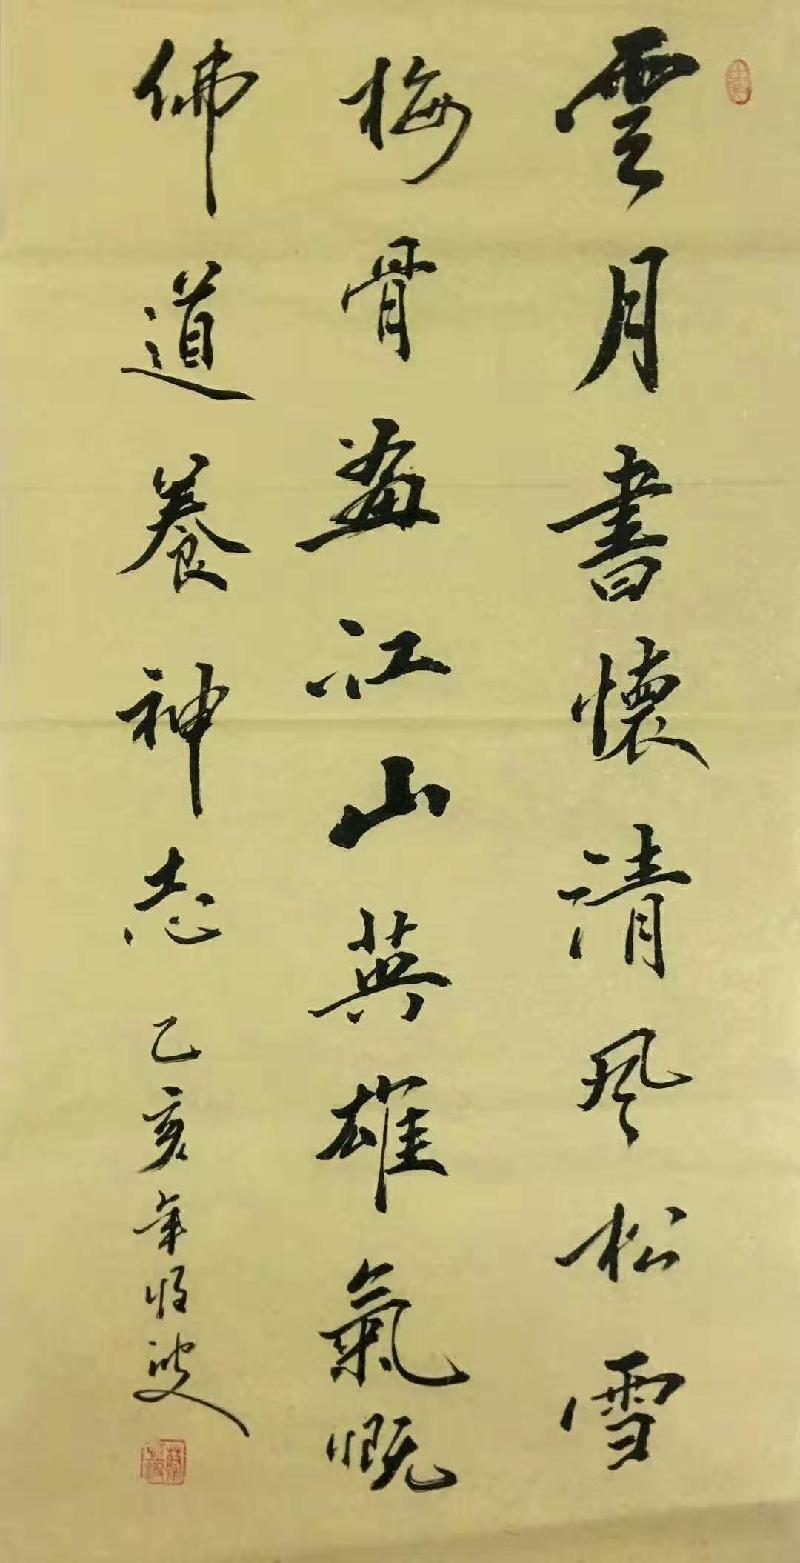 雲月書懷清風松雪
梅骨畫江山英雄氣慨
佛道養神志 乙亥年